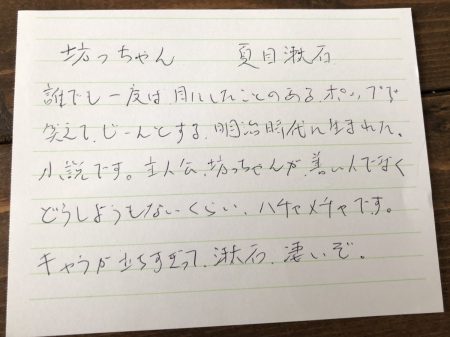 坊っちゃん 夏目漱石
誰でも一度は、目にしたことのある、ポップで
笑えて、じーんとする、明治時代に生まれた、
小説です。主人公、坊っちゃんが、善い人でなく
どうしようもないくらい、ハチャメチャです。
キャラが立ちすぎって、漱石、凄いぞ。